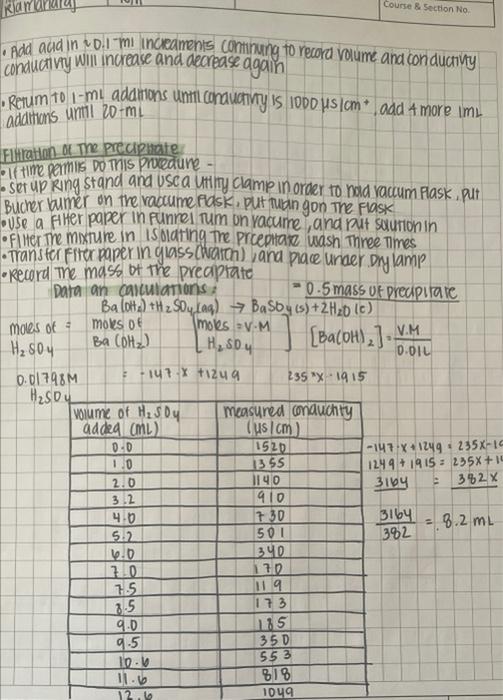 Course & Section No.
• Add acid in ~0.1-ml increaments continung to record volume and conductivity
conductivity will increase and decrease again
• Return to 1-mL additions until conductivity is 1000 µs/cm⁺, add 4 more 1mL
additions until 20-mL
Filtration of The Precipitate
• If time permits Do This procedure -
• set up Ring stand and use a utility clamp in order to hold vaccum Flask, put
Bucher on the vaccume flask, put on The Flask
• use a Filter paper in Funnel turn on vacume, and solution in
• Filter The mixture in isolating The wash Three Times
• Transfer Filter paper in glass (watch), and place under Dry lamp
• Record The mass of the precipitate
= 0.5 mass of precipitate
Data an calculations:
Ba(OH₂) + H₂SO₄ (aq) → BaSO₄ (s) + 2H₂O (l)
moles of = moles of [moles = V·M [Ba(OH)₂] = V.M
H₂SO₄ Ba (OH₂) H₂SO₄] 0.01L
0.01798M = -147·x +1249 235*x - 1915
H₂SO₄
volume of H₂SO₄ measured
added (mL) (µs/cm)
0.0 1520
1.0 1355
2.0 1140
3.2 910
4.0 730
5.2 501
6.0 340
7.0 170
7.5 119
8.5 173
9.0 185
9.5 350
10.6 553
11.6 818
12.6 1049
-147·x +1249 = 235x-19
1249 + 1915 = 235x + 1
3164 = 382x
3164 = 8.2 mL
382